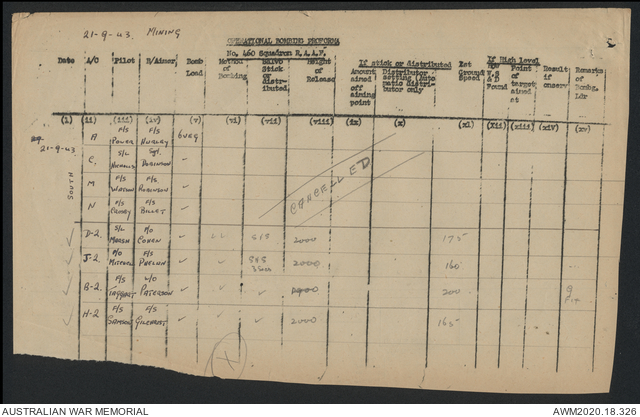 21-9-43. MINING
OPERATIONAL BOMBING PROFORMA
No. 460 Squadron R.A.A.F.
Date A/C Pilot B/Aimer Bomb Load Method of Bombing Salvo Stick or distributed Height of Release If stick or distributed Amount aimed off aiming point Distributor setting (Auto distributor only Est Ground Speed If High level Found Point of target aimed at Result if observ Remarks of Bombg. Ldr
(i) (ii) (iii) (iv) (v) (vi) (vii) (viii) (ix) (x) (xi) (xii) (xiii) (xiv) (xv)
21-9-43 A F/S POWER F/S HURLEY 6VEG
C, S/L NICHOLLS Sgt. ROBINSON ✓
SOUTH
M F/S WATSON F/S ROBINSON ✓
N F/S CROSBY F/S BILLET ✓
CANCELLED
✓ D-2. S/L MARSH P/O COHEN ✓ ✓✓ 2000 175
✓ J-2. P/O F/S PHELAN ✓ ✓ 2000 160
✓ B-2. F/S TAGGART W/O PATERSON ✓ ✓ ✓ 200
✓ H-2 F/S SAMSON F/S GILCHRIST ✓ ✓ ✓ 2000 165
X
AUSTRALIAN WAR MEMORIAL AWM2020.18.326